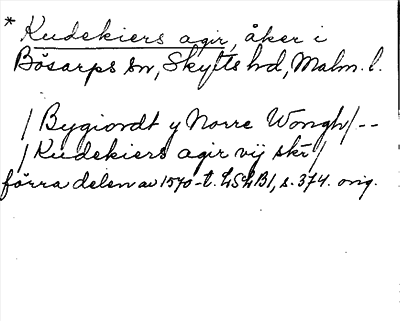 * Kudekiers agir, åker i
Bösarps sn, Skytts hd, Malm. l.
/ Bygiordt y Norre Wongh / --
/ Kudekiers agir vij skr /
förra delen av 1570-t. LSLB1, s. 374. orig.